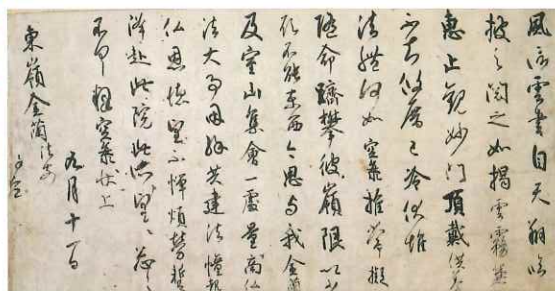 風信雲書自天翔臨
披之閲之如掲雲霧兼
恵止觀妙門頂戴供養
不知攸厝已冷伏惟
法體何如空海推常擬
隨命躋攀彼嶺限以少
願不能東西今思与我金蘭
及室山集會一處量商仏
法大事因縁共建法幢報
仏恩徳望不憚煩勞蹔
降赴此院此所望々忩々
不具釋空海状上
九月十一日
東嶺金蘭法前
謹空